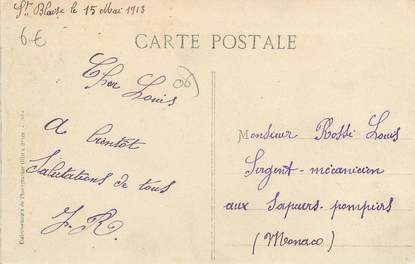 St Blaise le 15 Mai 1913
6 €
CARTE POSTALE
06
Cher
Louis
a bientôt
Salutations de tous
J. R.
Monsieur Rossi Louis
Sergent-mécanicien
aux Sapeurs-pompiers
(Monaco)